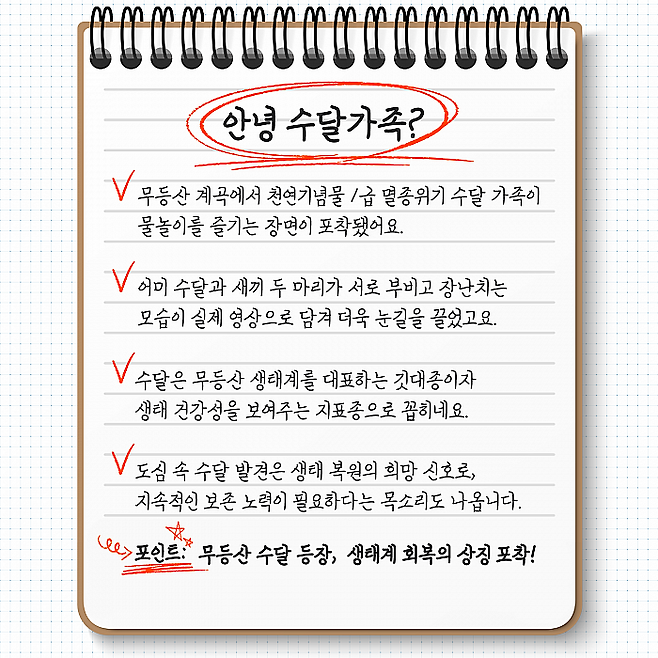 안녕 수달가족?
무등산 계곡에서 천연기념물 1급 멸종위기 수달 가족이
물놀이를 즐기는 장면이 포착됐어요.
어미 수달과 새끼 두 마리가 서로 부비고 장난치는
모습이 실제 영상으로 담겨 더욱 눈길을 끌었고요.
수달은 무등산 생태계를 대표하는 깃대종이자
생태 건강성을 보여주는 지표종으로 꼽히네요.
도심 속 수달 발견은 생태 복원의 희망 신호로,
지속적인 보존 노력이 필요하다는 목소리도 나옵니다.
포인트: 무등산 수달 등장, 생태계 회복의 상징 포착!